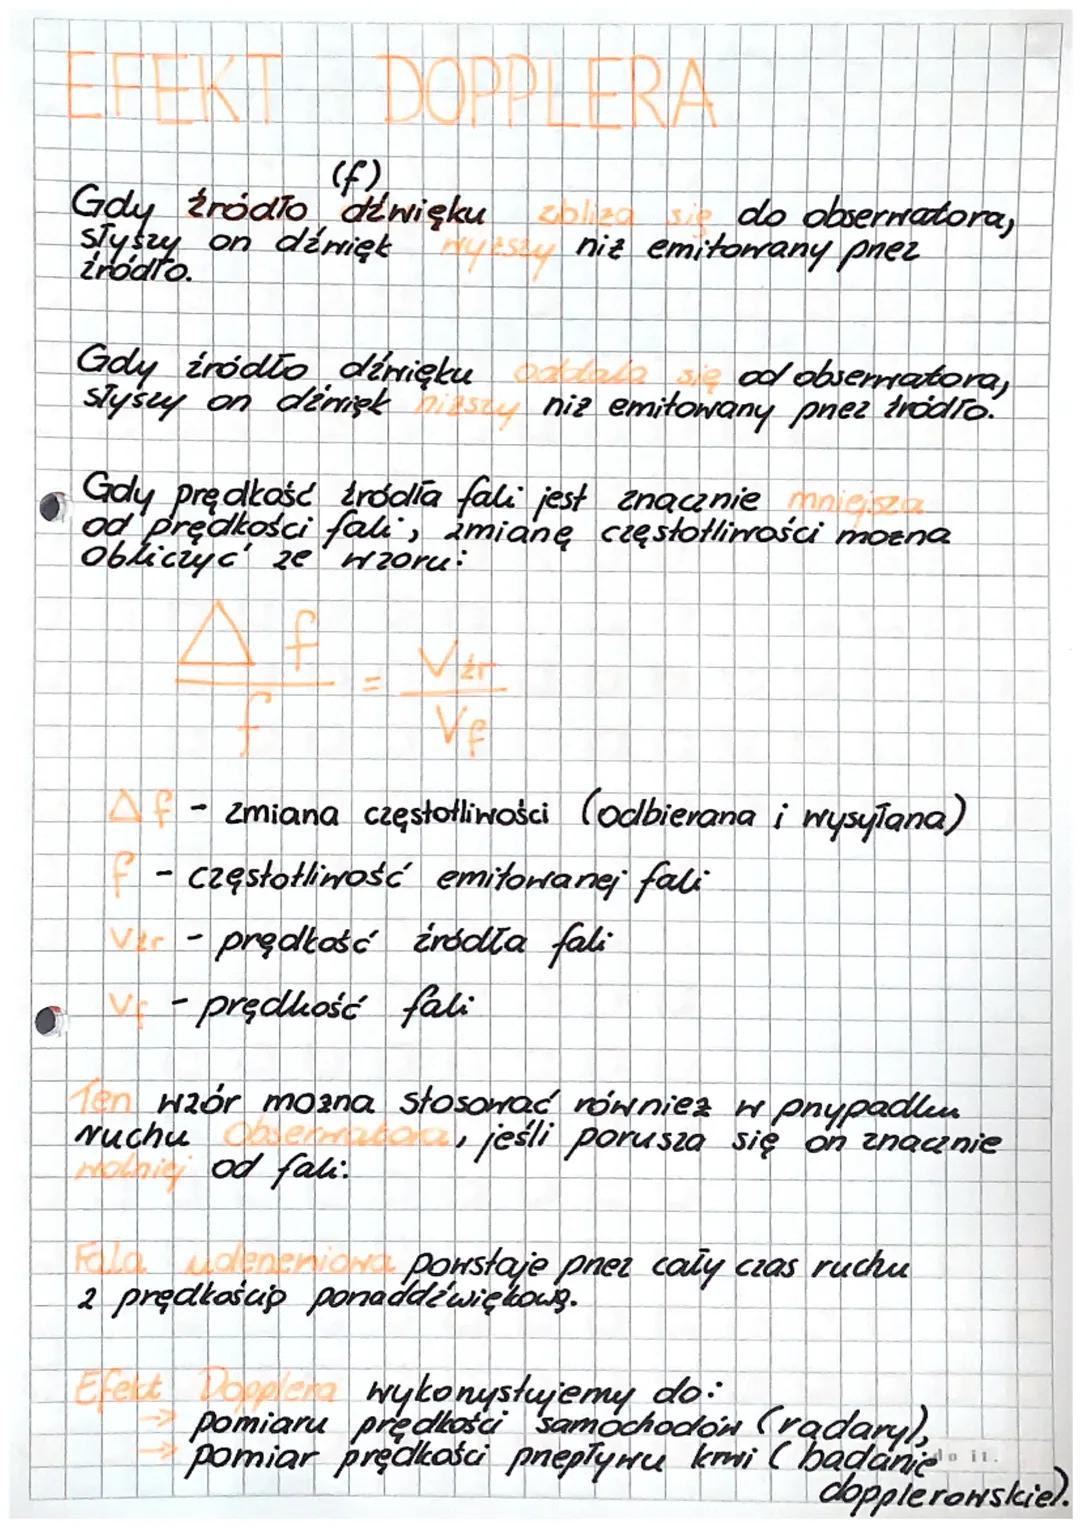 EFEKT DOPPLERA
(f)
Gdy źródło dźwięku zbliża się do obserwatora,
słyszy on dźwięk wyższy niż emitowany przez
źródło.
Gdy źródło dźwięku oddala się od obserwatora,
słyszy on dźwięk niższy niż emitowany przez źródło.
Gdy prędkość źródła fali jest znacznie mniejsza
od prędkości fali, zmianę częstotliwości można
obliczyć ze wzoru:
Δf / f = Vźr / Vf
Δf - zmiana częstotliwości (odbierana i wysyłana)
f - częstotliwość emitowanej fali
Vźr - prędkość źródła fali
Vf - prędkość fali
Ten wzór można stosować również w przypadku
ruchu obserwatora, jeśli porusza się on znacznie
wolniej od fali:
Fala uderzeniowa powstaje przez cały czas ruchu
z prędkością ponaddźwiękową.
Efekt Dopplera wykorzystujemy do:
→ pomiaru prędkości samochodów (radary),
→ pomiar prędkości przepływu krwi (badanie
do it.
dopplerowskie).